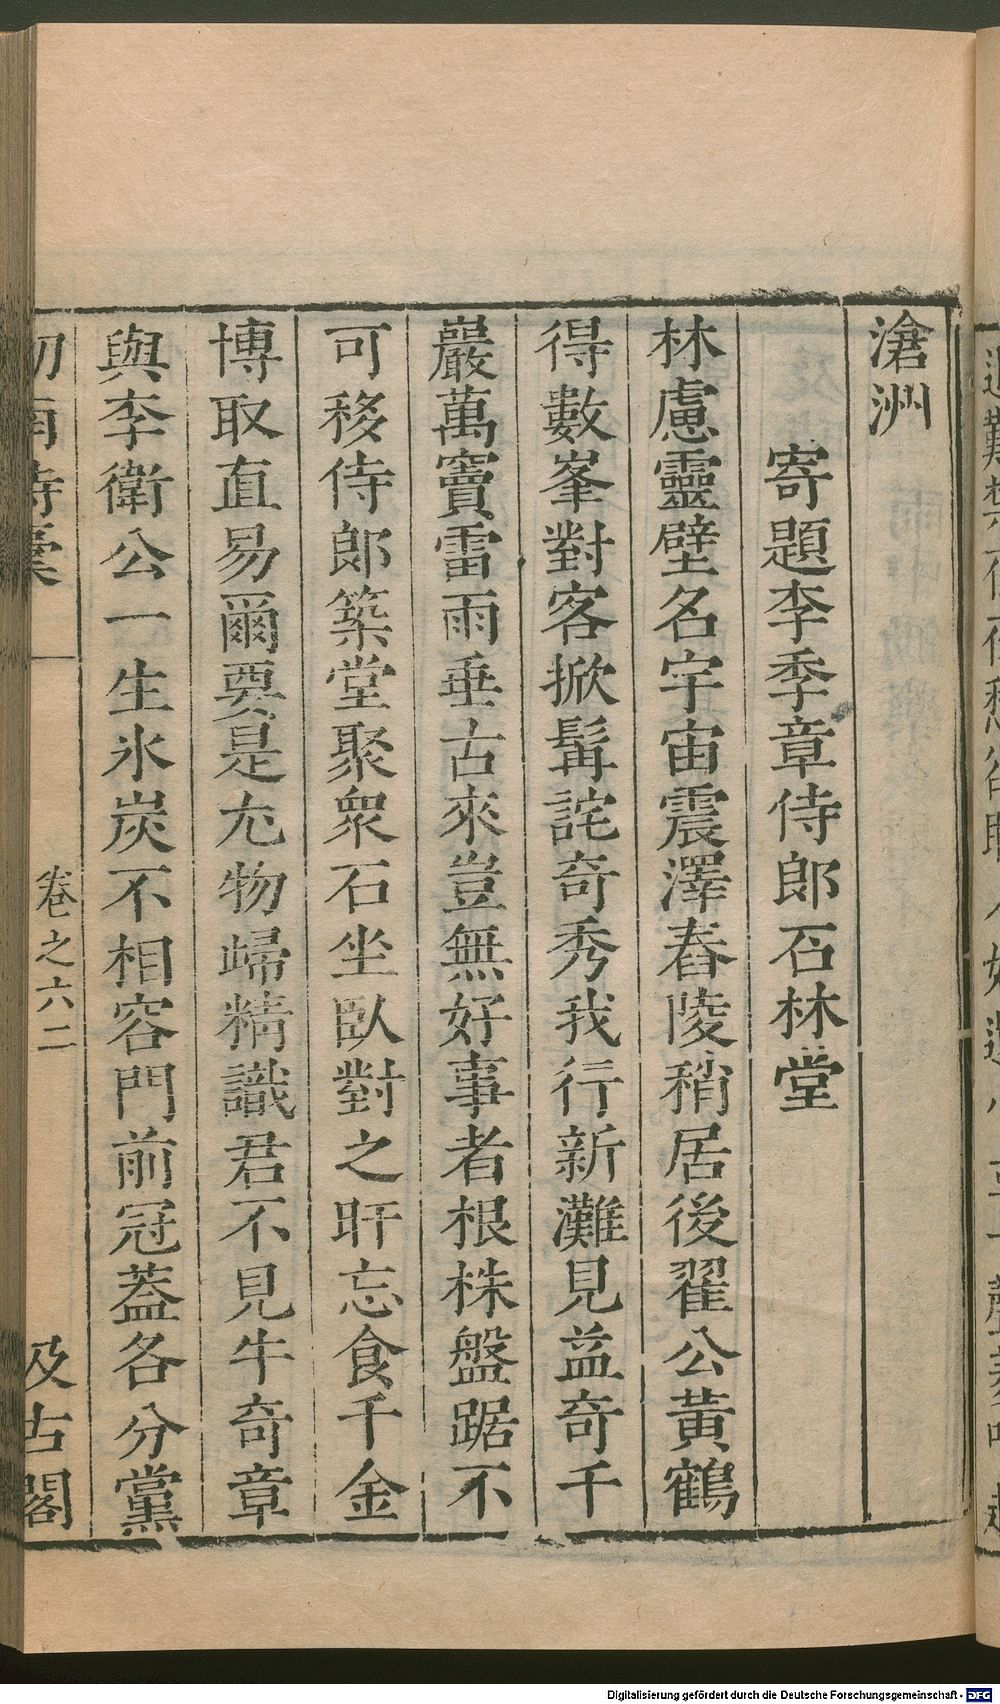 滄洲
寄題李季章侍郎石林堂
林慮靈壁名宇宙震澤舂陵稍居後翟公黃鶴
得數峯對客掀髯詫奇秀我行新灘見益奇千
巖萬竇雷雨垂古來豈無好事者根株盤踞不
可移侍郎築堂聚衆石坐臥對之旰忘食千金
博取直易爾要是尤物歸精識君不見牛奇章
與李衛公一生氷炭不相容門前冠蓋各分黨
劒南詩稾 卷之六二 汲古閣
Digitalisierung gefördert durch die Deutsche Forschungsgemeinschaft - DFG